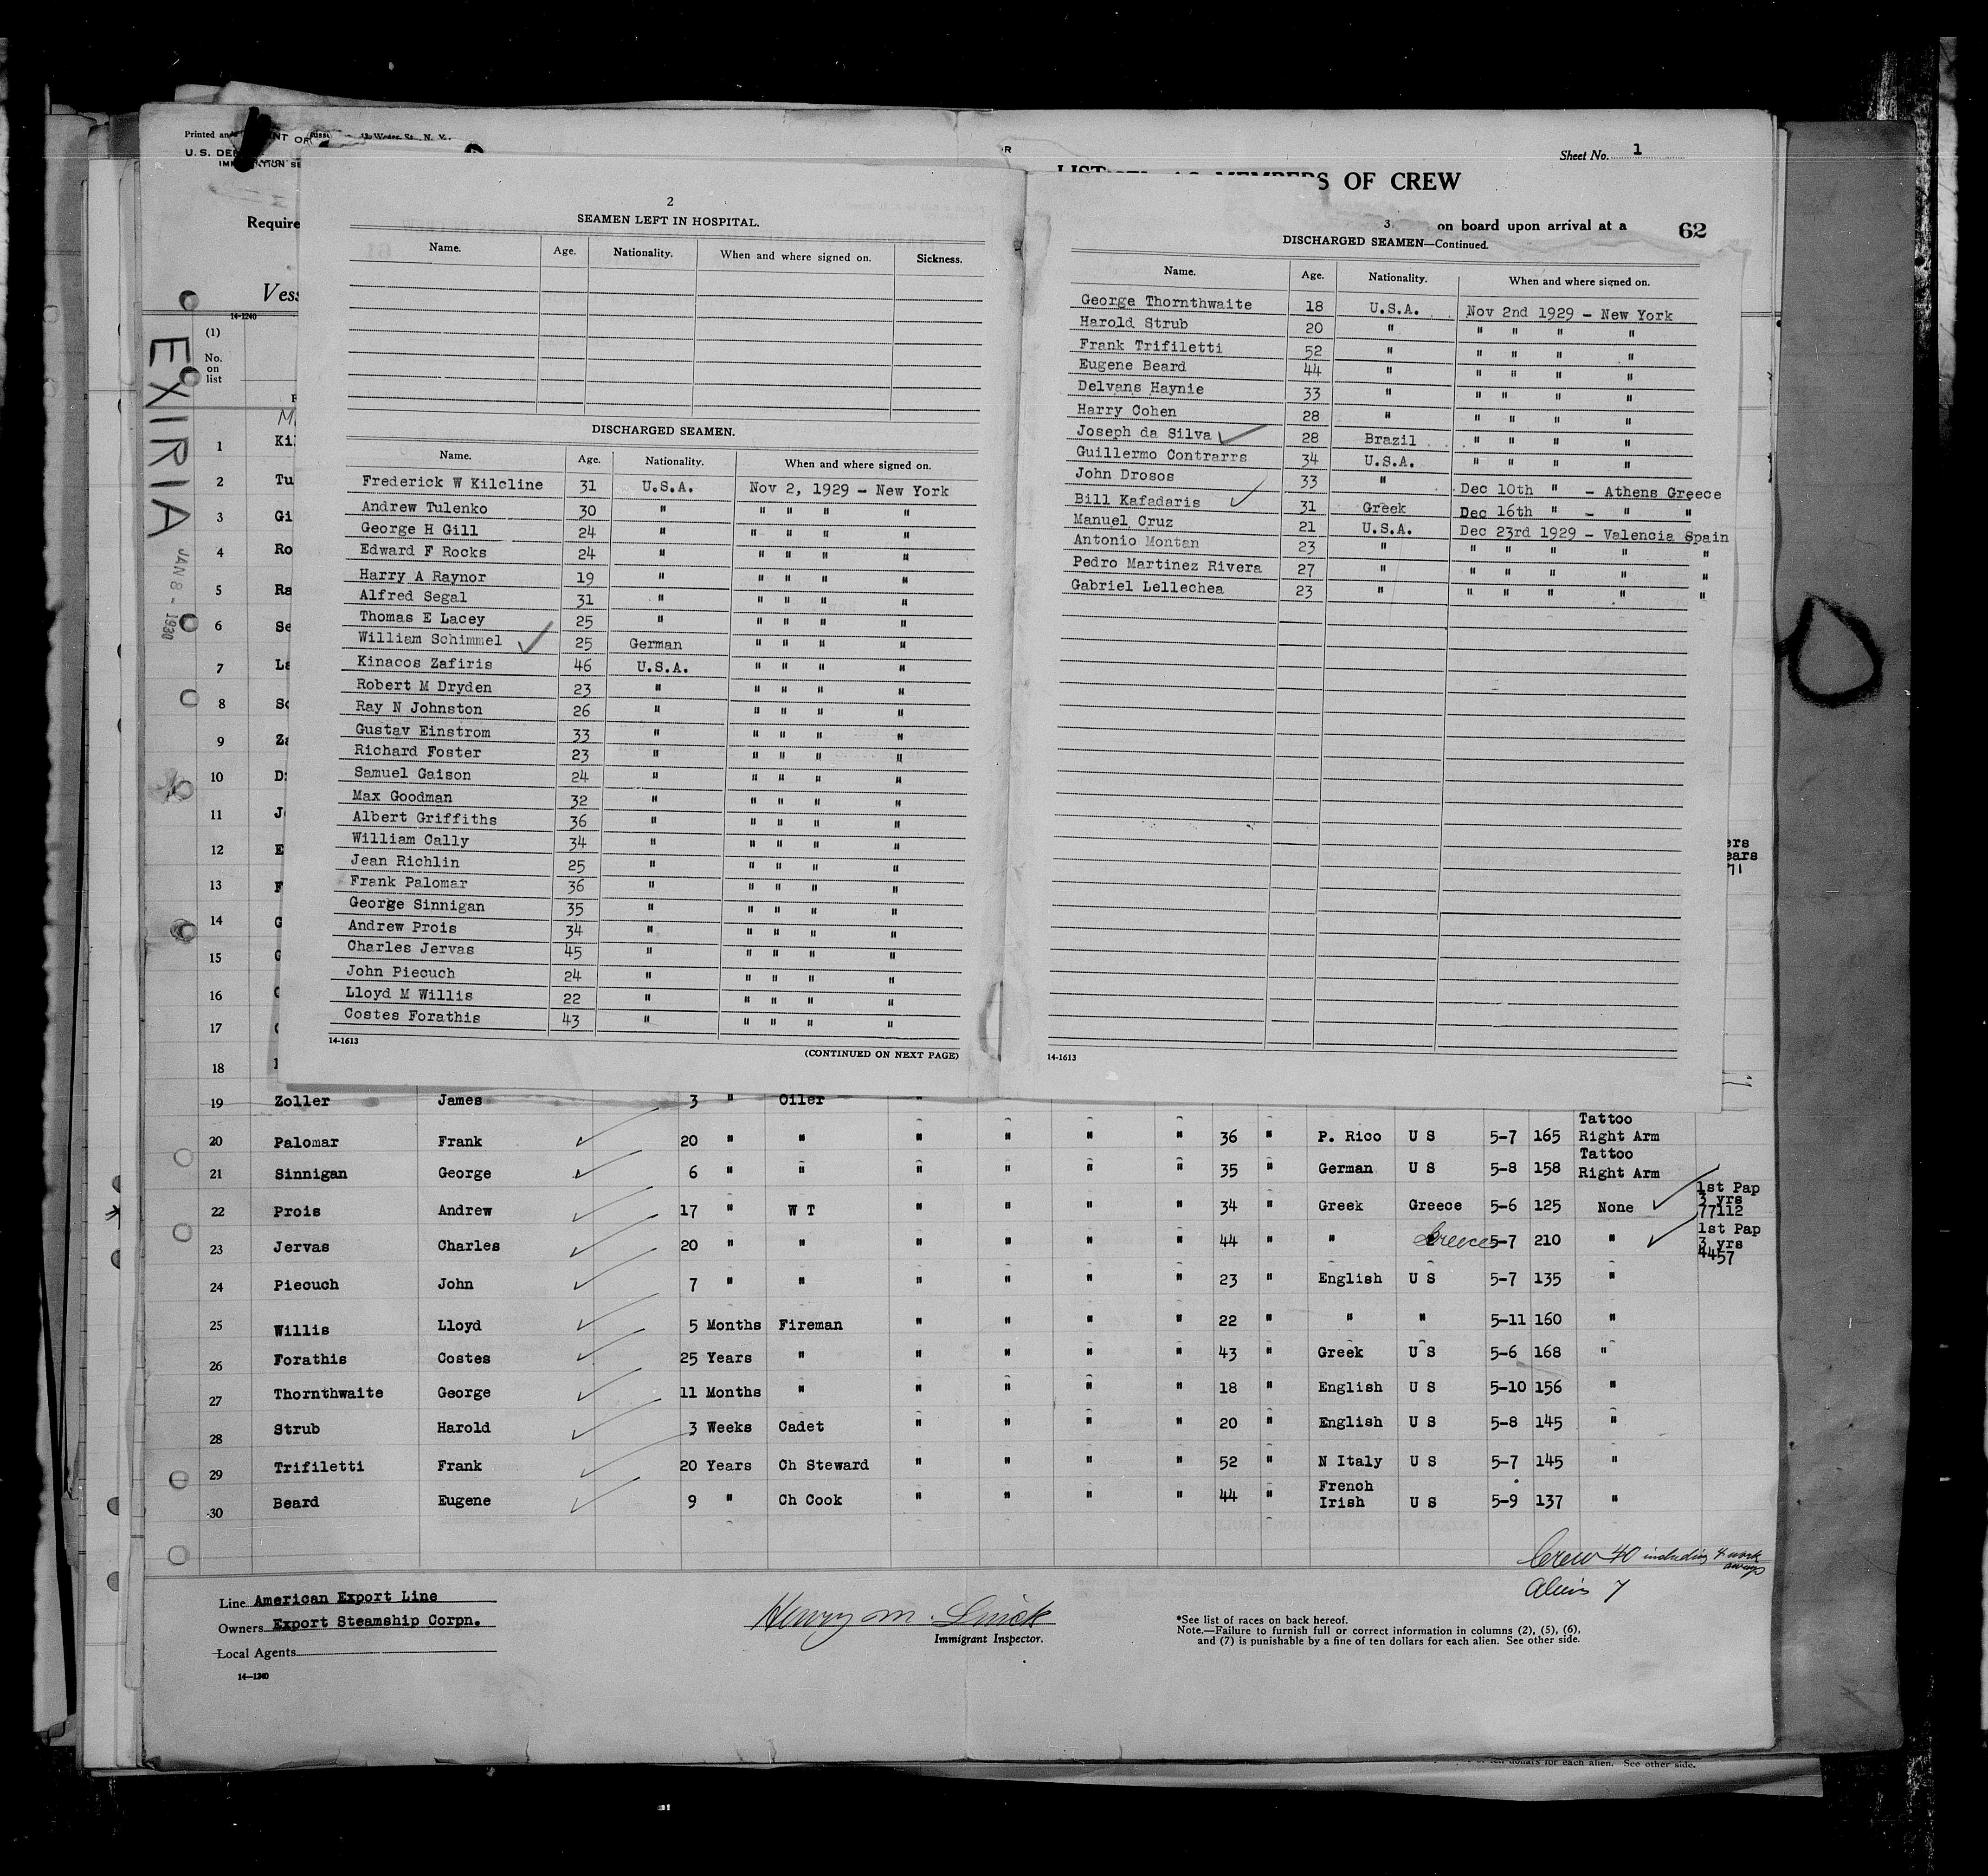 Printed an
U.S. DE
Sheet No. 1
S OF CREW
Require
on board upon arrival at a 62
Vess
14-1240
(1)
No.
on
list
EXIRIA
JAN 8 - 1930
2
SEAMEN LEFT IN HOSPITAL.
Name. Age. Nationality. When and where signed on. Sickness.
DISCHARGED SEAMEN.
Name. Age. Nationality. When and where signed on.
Frederick W Kilcline 31 U.S.A. Nov 2, 1929 - New York
Andrew Tulenko 30 " " " " "
George H Gill 24 " " " " "
Edward F Rocks 24 " " " " "
Harry A Raynor 19 " " " " "
Alfred Segal 31 " " " " "
Thomas E Lacey 25 " " " " "
William Schimmel 25 German " " " "
Kinacos Zafiris 46 U.S.A. " " " "
Robert M Dryden 23 " " " " "
Ray N Johnston 26 " " " " "
Gustav Einstrom 33 " " " " "
Richard Foster 23 " " " " "
Samuel Gaison 24 " " " " "
Max Goodman 32 " " " " "
Albert Griffiths 36 " " " " "
William Cally 34 " " " " "
Jean Richlin 25 " " " " "
Frank Palomar 36 " " " " "
George Sinnigan 35 " " " " "
Andrew Prois 34 " " " " "
Charles Jervas 45 " " " " "
John Piecuch 24 " " " " "
Lloyd M Willis 22 " " " " "
Costes Forathis 43 " " " " "
14-1613
(CONTINUED ON NEXT PAGE)
3
DISCHARGED SEAMEN—Continued.
Name. Age. Nationality. When and where signed on.
George Thornthwaite 18 U.S.A. Nov 2nd 1929 - New York
Harold Strub 20 " " " " "
Frank Trifiletti 52 " " " " "
Eugene Beard 44 " " " " "
Delvans Haynie 33 " " " " "
Harry Cohen 28 " " " " "
Joseph da Silva 28 Brazil " " " "
Guillermo Contrarrs 34 U.S.A. " " " "
John Drosos 33 " Dec 10th " - Athens Greece
Bill Kafadaris 31 Greek Dec 16th " - " "
Manuel Cruz 21 U.S.A. Dec 23rd 1929 - Valencia Spain
Antonio Montan 23 " " " " " "
Pedro Martinez Rivera 27 " " " " " "
Gabriel Lellechea 23 " " " " " "
14-1613
1 Ki
2 Tu
3 Gi
4 Ro
5 Ra
6 Se
7 La
8 Sc
9 Za
10 D
11 J
12 E
13 F
14 G
15 G
16
17
18
19 Zoller James 3 " Oiler "
20 Palomar Frank 20 " " " " " " 36 " P. Rico U S 5-7 165 Tattoo Right Arm
21 Sinnigan George 6 " " " " " " 35 " German U S 5-8 158 Tattoo Right Arm
22 Prois Andrew 17 " W T " " " " 34 " Greek Greece 5-6 125 None 1st Pap 3 yrs 77112
23 Jervas Charles 20 " " " " " " 44 " " Greece 5-7 210 " 1st Pap 3 yrs 4457
24 Piecuch John 7 " " " " " " 23 " English U S 5-7 135 "
25 Willis Lloyd 5 Months Fireman " " " " 22 " " " 5-11 160 "
26 Forathis Costes 25 Years " " " " " 43 " Greek U S 5-6 168 "
27 Thornthwaite George 11 Months " " " " " 18 " English U S 5-10 156 "
28 Strub Harold 3 Weeks Cadet " " " " 20 " English U S 5-8 145 "
29 Trifiletti Frank 20 Years Ch Steward " " " " 52 " N Italy U S 5-7 145 "
30 Beard Eugene 9 " Ch Cook " " " " 44 " French Irish U S 5-9 137 "
Crew 40 including 4 work aways
Aliens 7
Line American Export Line
Owners Export Steamship Corpn.
Local Agents
14-1240
Immigrant Inspector.
*See list of races on back hereof.
Note.—Failure to furnish full or correct information in columns (2), (5), (6),
and (7) is punishable by a fine of ten dollars for each alien. See other side.
ten dollars for each alien. See other side.